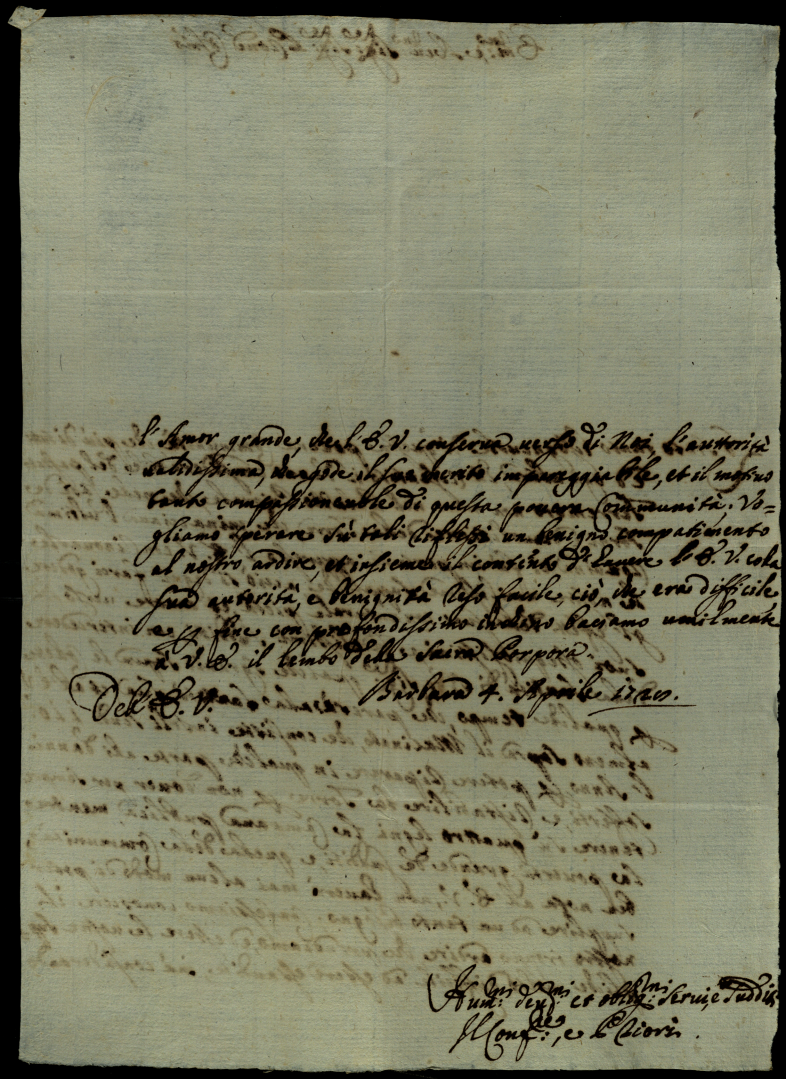 l'Amor grande, che l'E. V. conserva verso di Noi, l'auttorità
validissima, che gode il suo merito impareggiabile, et il motivo
tanto compassionevole di questa povera Communità. Vo=
gliamo sperare sù tali riflessi un benigno compatimento
al nostro ardire, et insieme il contento d'havere l'E. V. cola
sua autorità, e benignità reso facile, ciò, che era difficile
e p fine con profondissimo inchino baciamo umilmente
à V. E. il lembo della Sacra Porpora.
Dell'E. V. Barbara 4. Aprile
Hum:mi dev:mi et oblig:mi Servi, e Sudditi
Il Conf:re, e Priori.